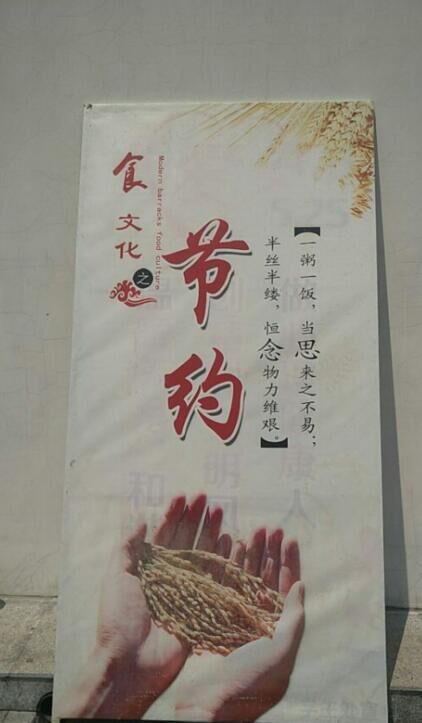 食文化之
Modern barracks food culture
节约
【一粥一饭，当思来之不易；
半丝半缕，恒念物力维艰。】